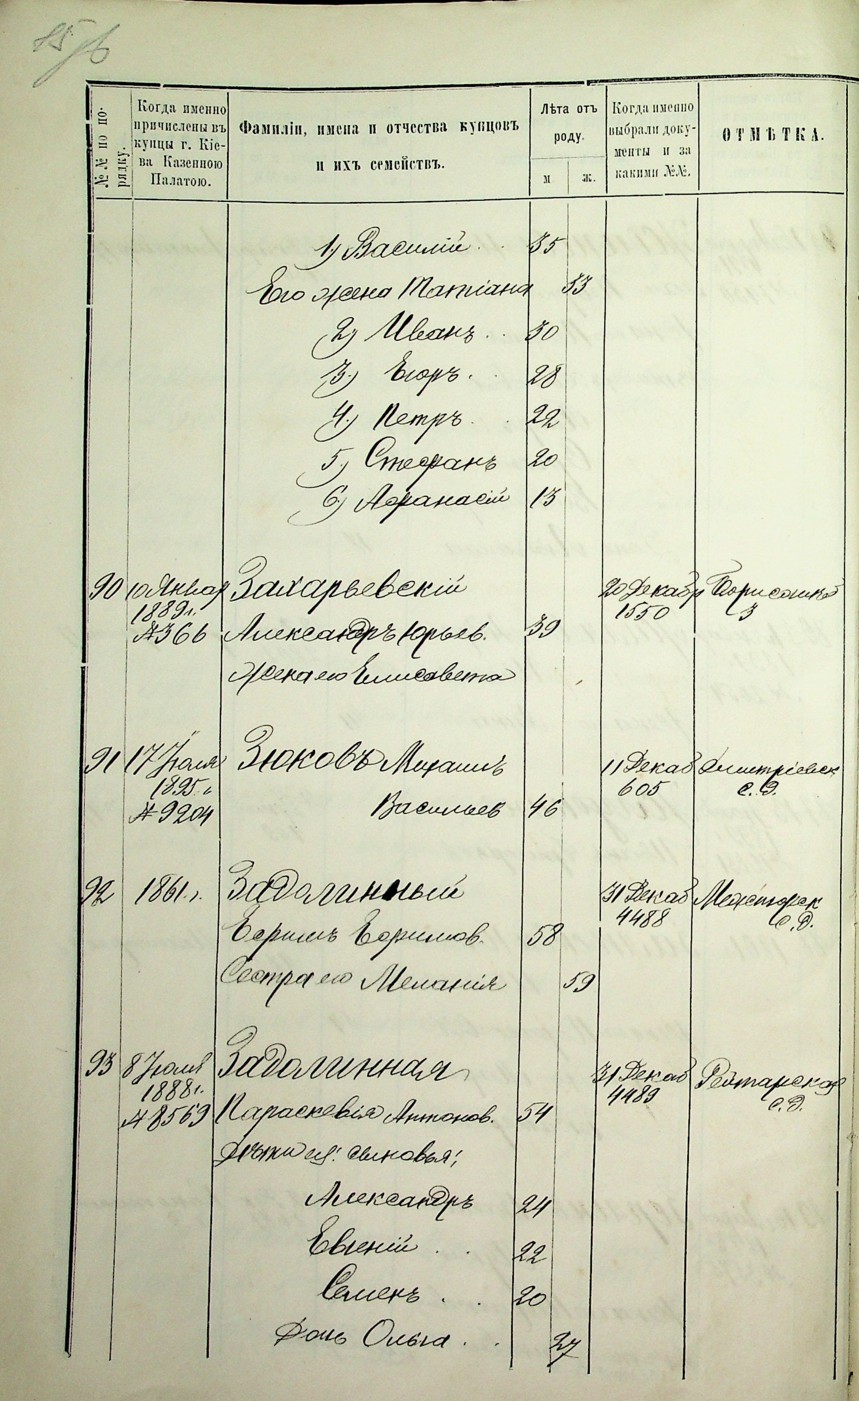 №№ по по-
рядку.
Когда именно
причислены въ
купцы г. Кіе-
ва Казенною
Палатою.
Фамиліи, имена и отчества купцовъ
и ихъ семействъ.
Лѣта отъ
роду.
м ж.
Когда именно
выбрали доку-
менты и за
какими №№.
ОТМѢТКА.
1) Василій . . 35
Его жена Татіана 53
2) Иванъ . . 30
3) Егоръ . . 28
4) Петръ . . 22
5) Стефанъ 20
6) Афанасій 13
90 10 Январ Захарьевскій 20 Декабр
1889 г. 1550 3
№366 Александръ Юрьев. 39
жена его Елисавета
91 17 Іюля Зюковъ Михаилъ 11 Декаб Дмитріевск
1895 г. 605 с. д.
№9204 Васильев 46
92 1861 г. Задолинный 31 Декаб
4488 с. д.
Ефимъ Ефимов. 58
Сестра его Меланія 59
93 8 Іюля Задолинная 31 Декаб Рейтарская
1888 г. 4489 с. д.
№8569 Параскевія Антонов. 54
Дѣти ея: сыновья:
Александръ 24
Евгеній . . 22
Семенъ . . 20
Дочь Ольга . . 27